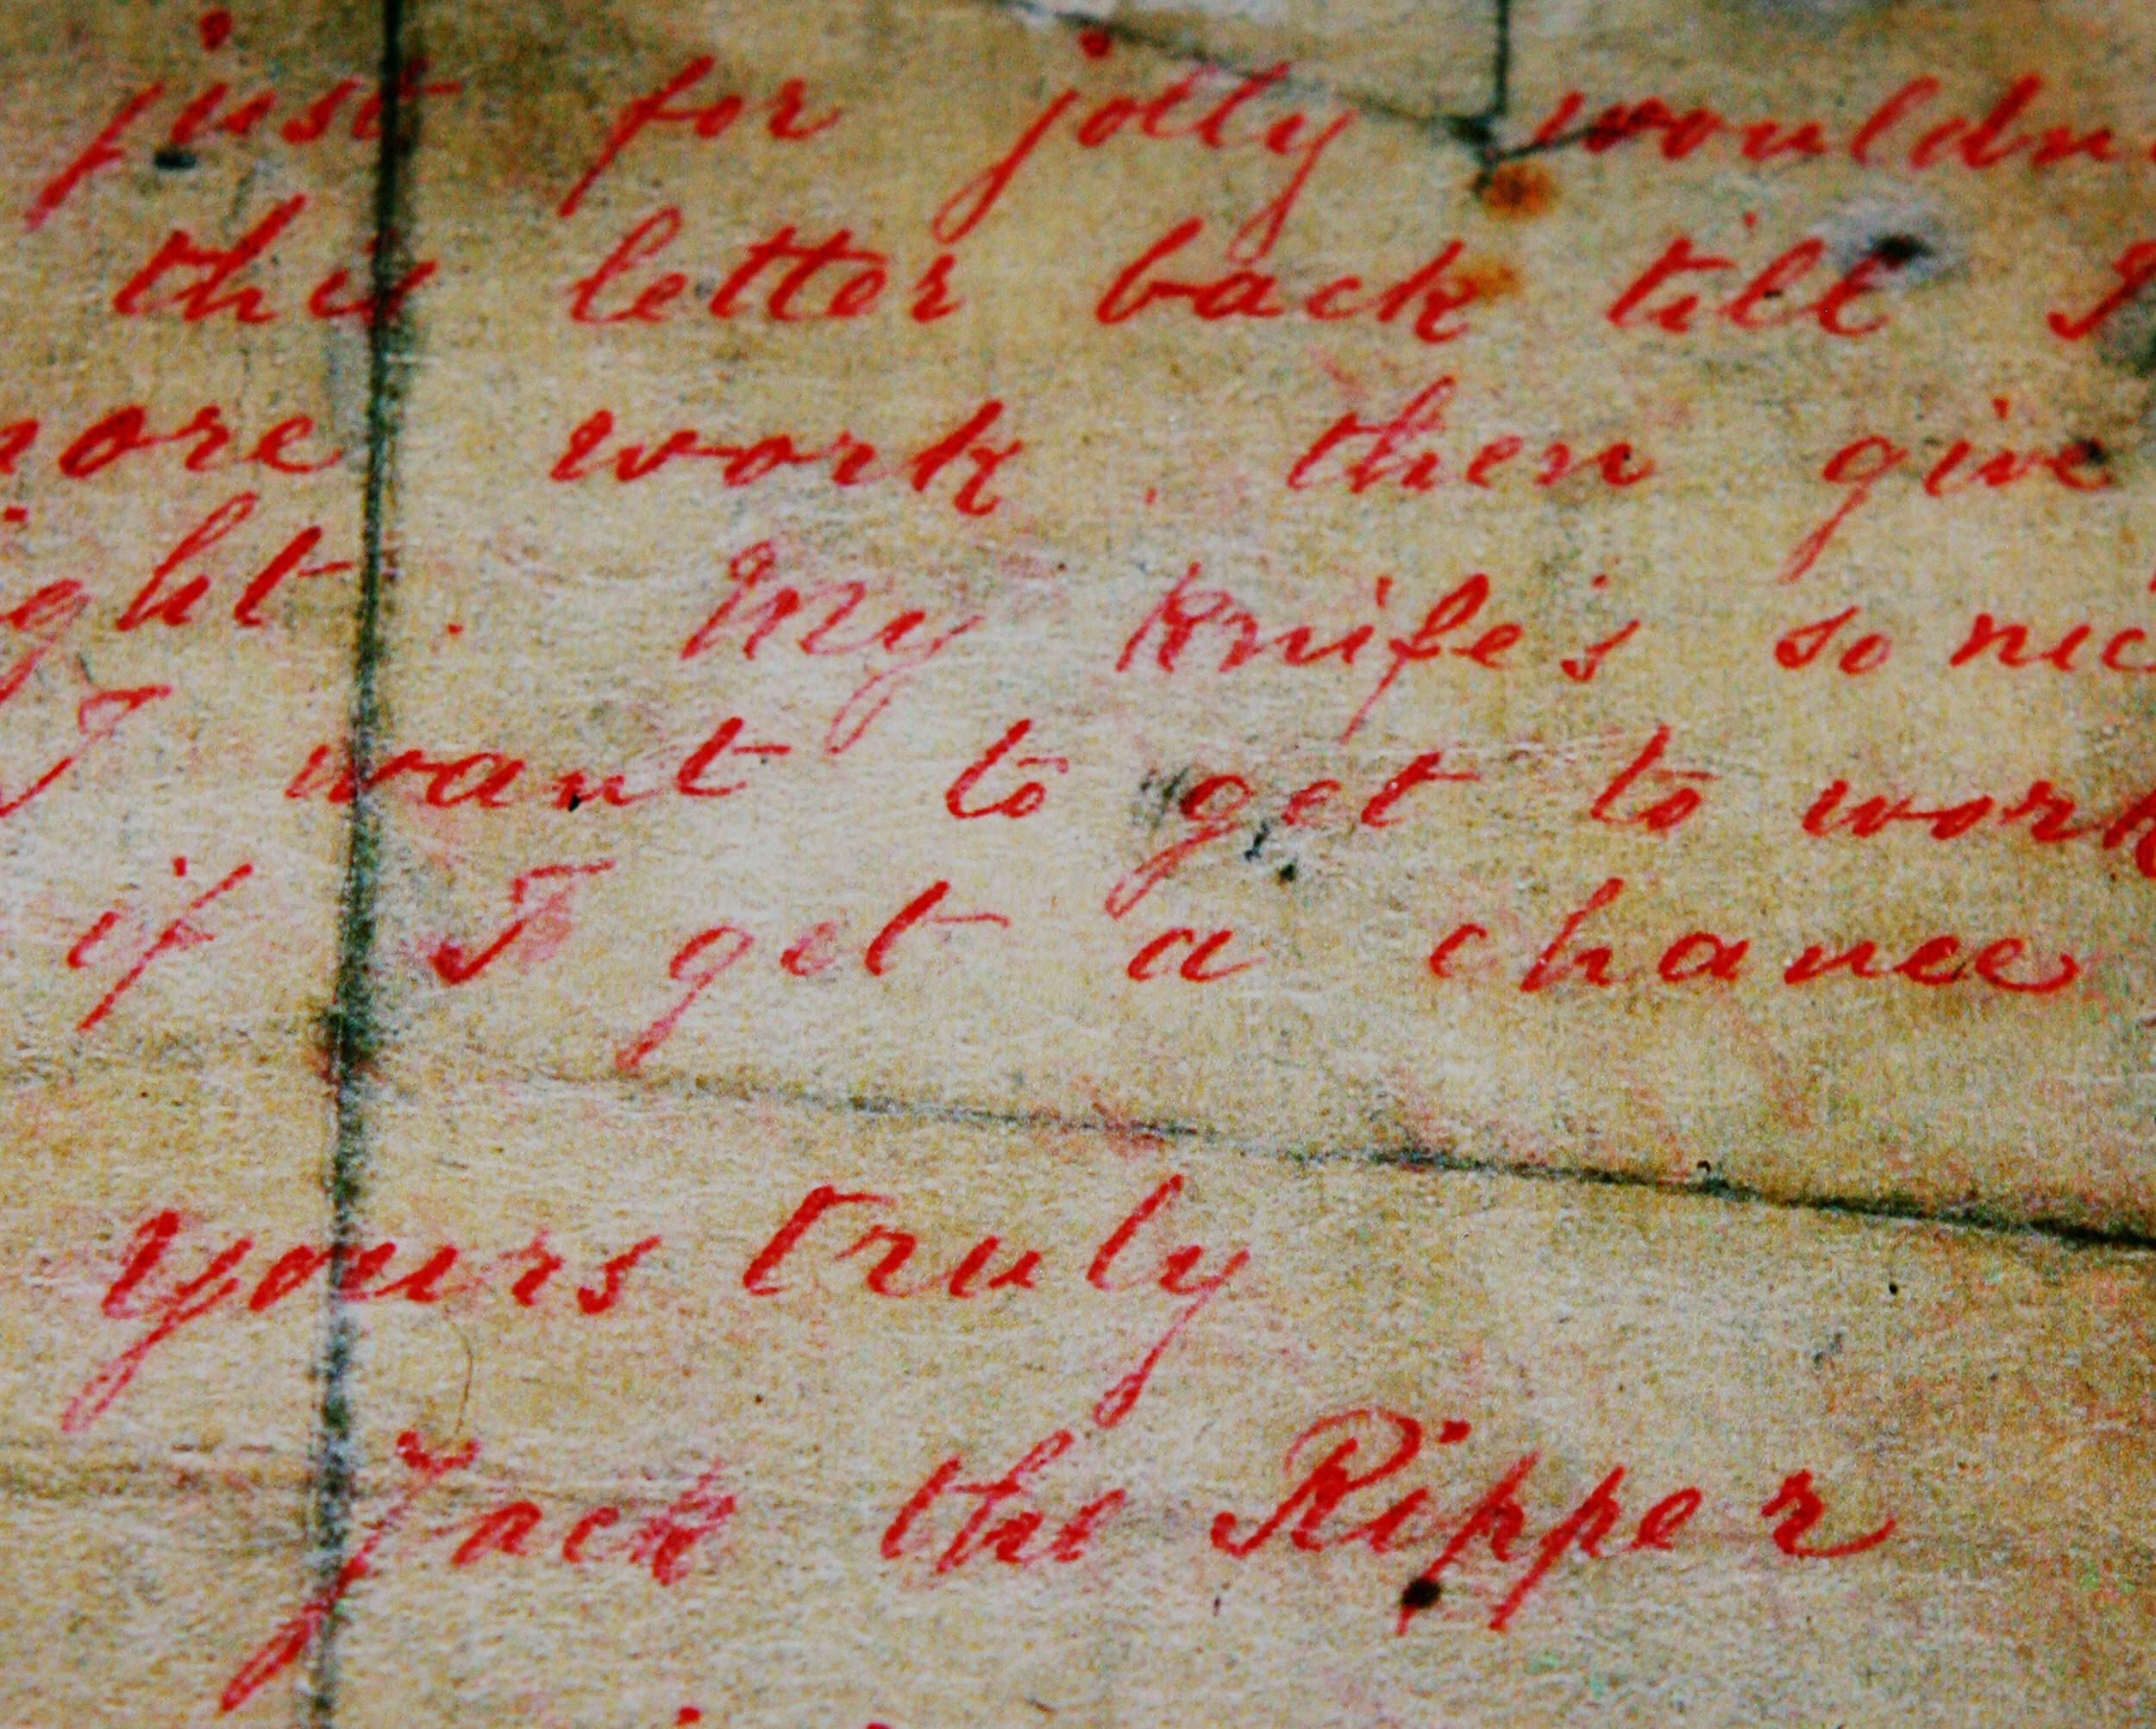 just for jolly wouldn
this letter back till I
more work . then give
ght . My knife's so nic
I want to get to work
if I get a chance
yours truly
Jack the Ripper